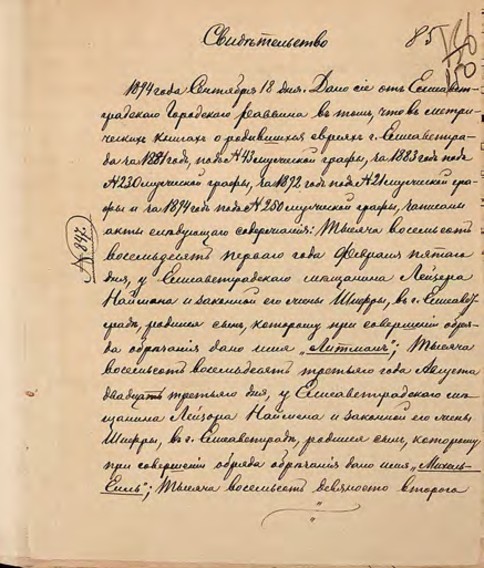 Свидѣтельство
85
150
1894 года Сентября 18 дня. Дано сіе отъ Елисавет-
градскаго Городскаго Раввина въ томъ, что въ метри-
ческихъ книгахъ о родившихся евреяхъ г. Елисаветгра-
да за 1881 годъ, подъ № 43 мужеской графы, за 1883 годъ подъ
№ 230 мужеской графы, за 1872 годъ подъ № 21 мужеской гра-
фы и за 1874 годъ подъ № 250 мужеской графы, записаны
акты слѣдующаго содержанія: Тысяча восемьсотъ
№ 847
восемьдесятъ перваго года Февраля пятаго
дня, у Елисаветградскаго мѣщанина Лейзера
Наймана и законной его жены Шифры, въ г. Елисавет-
градѣ, родился сынъ, которому при совершеніи обря-
да обрѣзанія дано имя „Литманъ"; Тысяча
восемьсотъ восемьдесятъ третьяго года Августа
двадцать третьяго дня, у Елисаветградскаго мѣ-
щанина Лейзора Наймана и законной его жены
Шифры, въ г. Елисаветградѣ, родился сынъ, которому
при совершеніи обряда обрѣзанія дано имя „Михель-
"; Тысяча восемьсотъ девяносто втораго